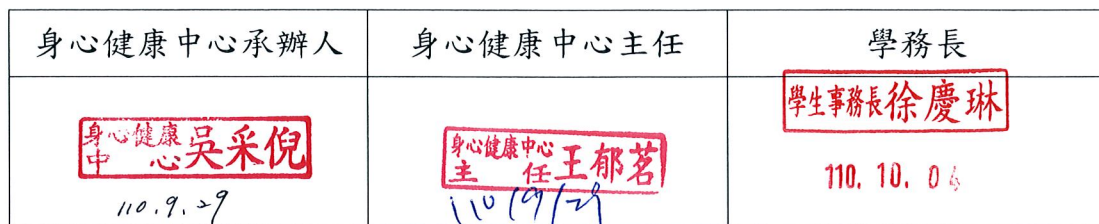 身心健康中心承辦人
身心健康中心主任
學務長
身心健康
中心
吳采倪
110.9.29
身心健康中心
主任
王郁茗
110/9/29
學生事務長徐慶琳
110. 10. 04